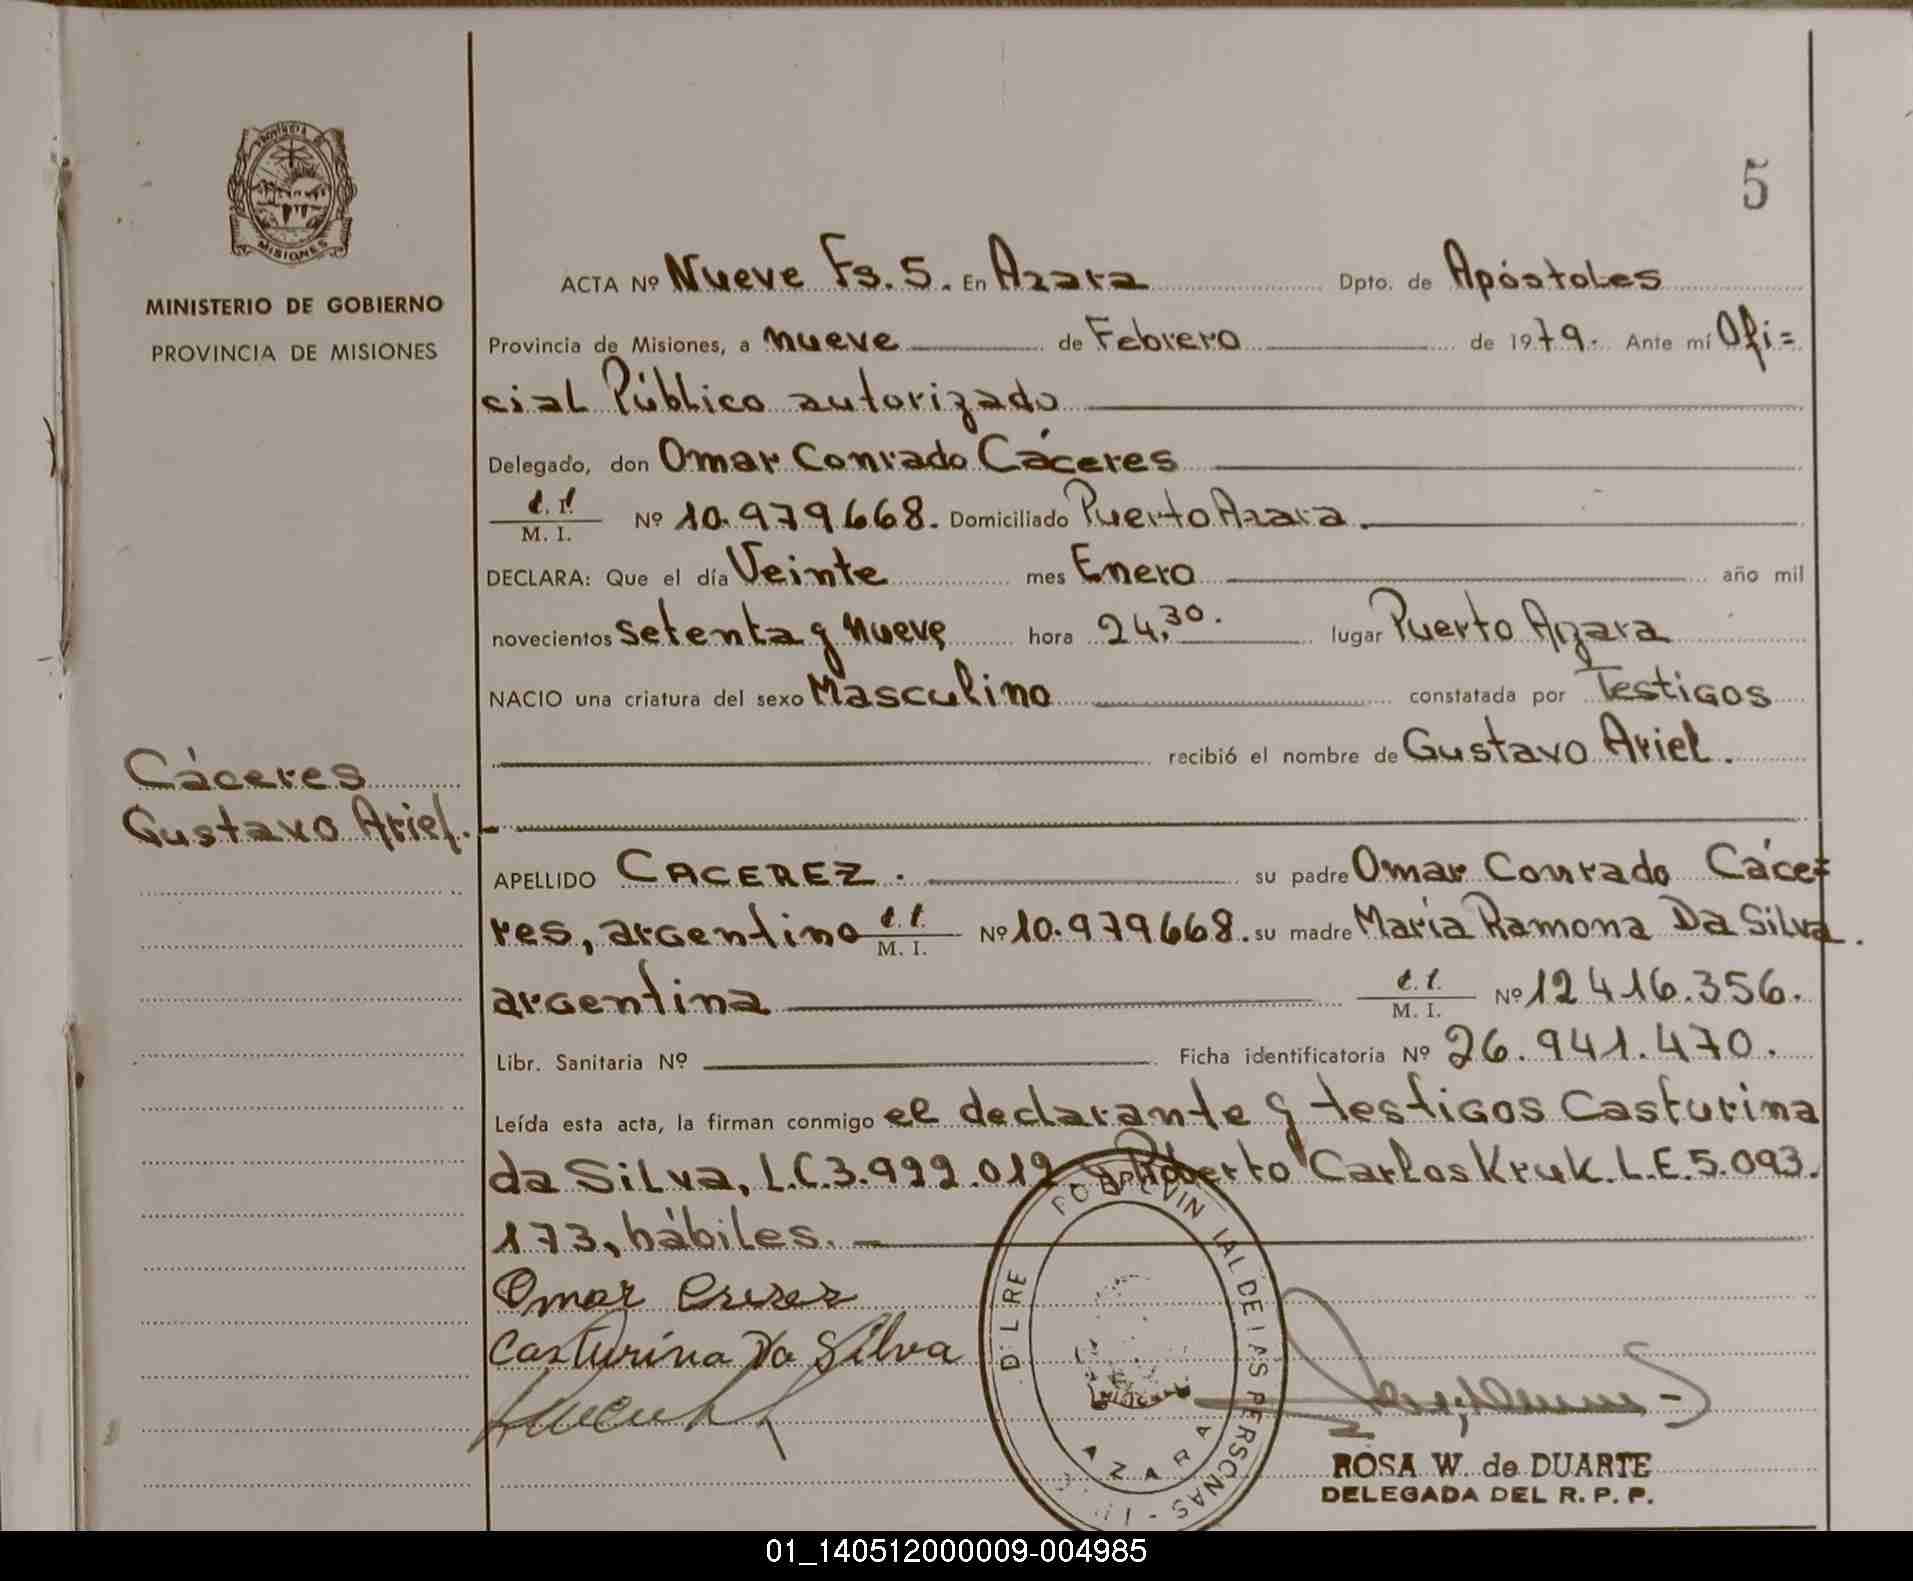 5
PROVINCIA DE
MISIONES
MINISTERIO DE GOBIERNO
PROVINCIA DE MISIONES
ACTA Nº Nueve Fs. 5. En Azara Dpto. de Apóstoles
Provincia de Misiones, a nueve de Febrero de 1979. Ante mí Ofi=
cial Público autorizado
Delegado, don Omar Conrado Cáceres
C. I.
M. I. Nº 10.979668. Domiciliado Puerto Azara.
DECLARA: Que el día Veinte mes Enero año mil
novecientos setenta y nueve hora 24,30. lugar Puerto Azara
NACIO una criatura del sexo Masculino constatada por Testigos
recibió el nombre de Gustavo Ariel.
Cáceres
Gustavo Ariel.
APELLIDO CACEREZ. su padre Omar Conrado Cáce=
res, argentino M. I. Nº 10.979668. su madre María Ramona Da Silva.
argentina M. I. Nº 12416.356.
Libr. Sanitaria Nº Ficha identificatoria Nº 26.941.470.
Leída esta acta, la firman conmigo el declarante y testigos Casturina
da Silva, L.C.3.922.012 y Roberto Carlos Kruk. L.E.5.093.
173, hábiles.
Omar
Casturina Da Silva
AZARA
ROSA W. de DUARTE
DELEGADA DEL R. P. P.
01_140512000009-004985